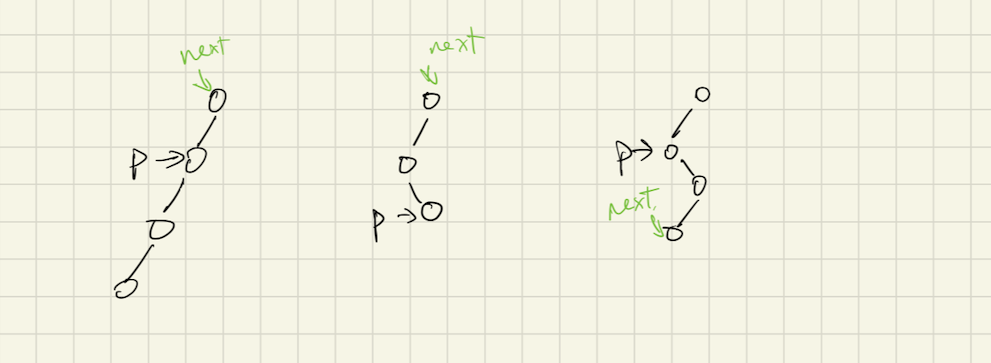 next
next
P
P
P
next